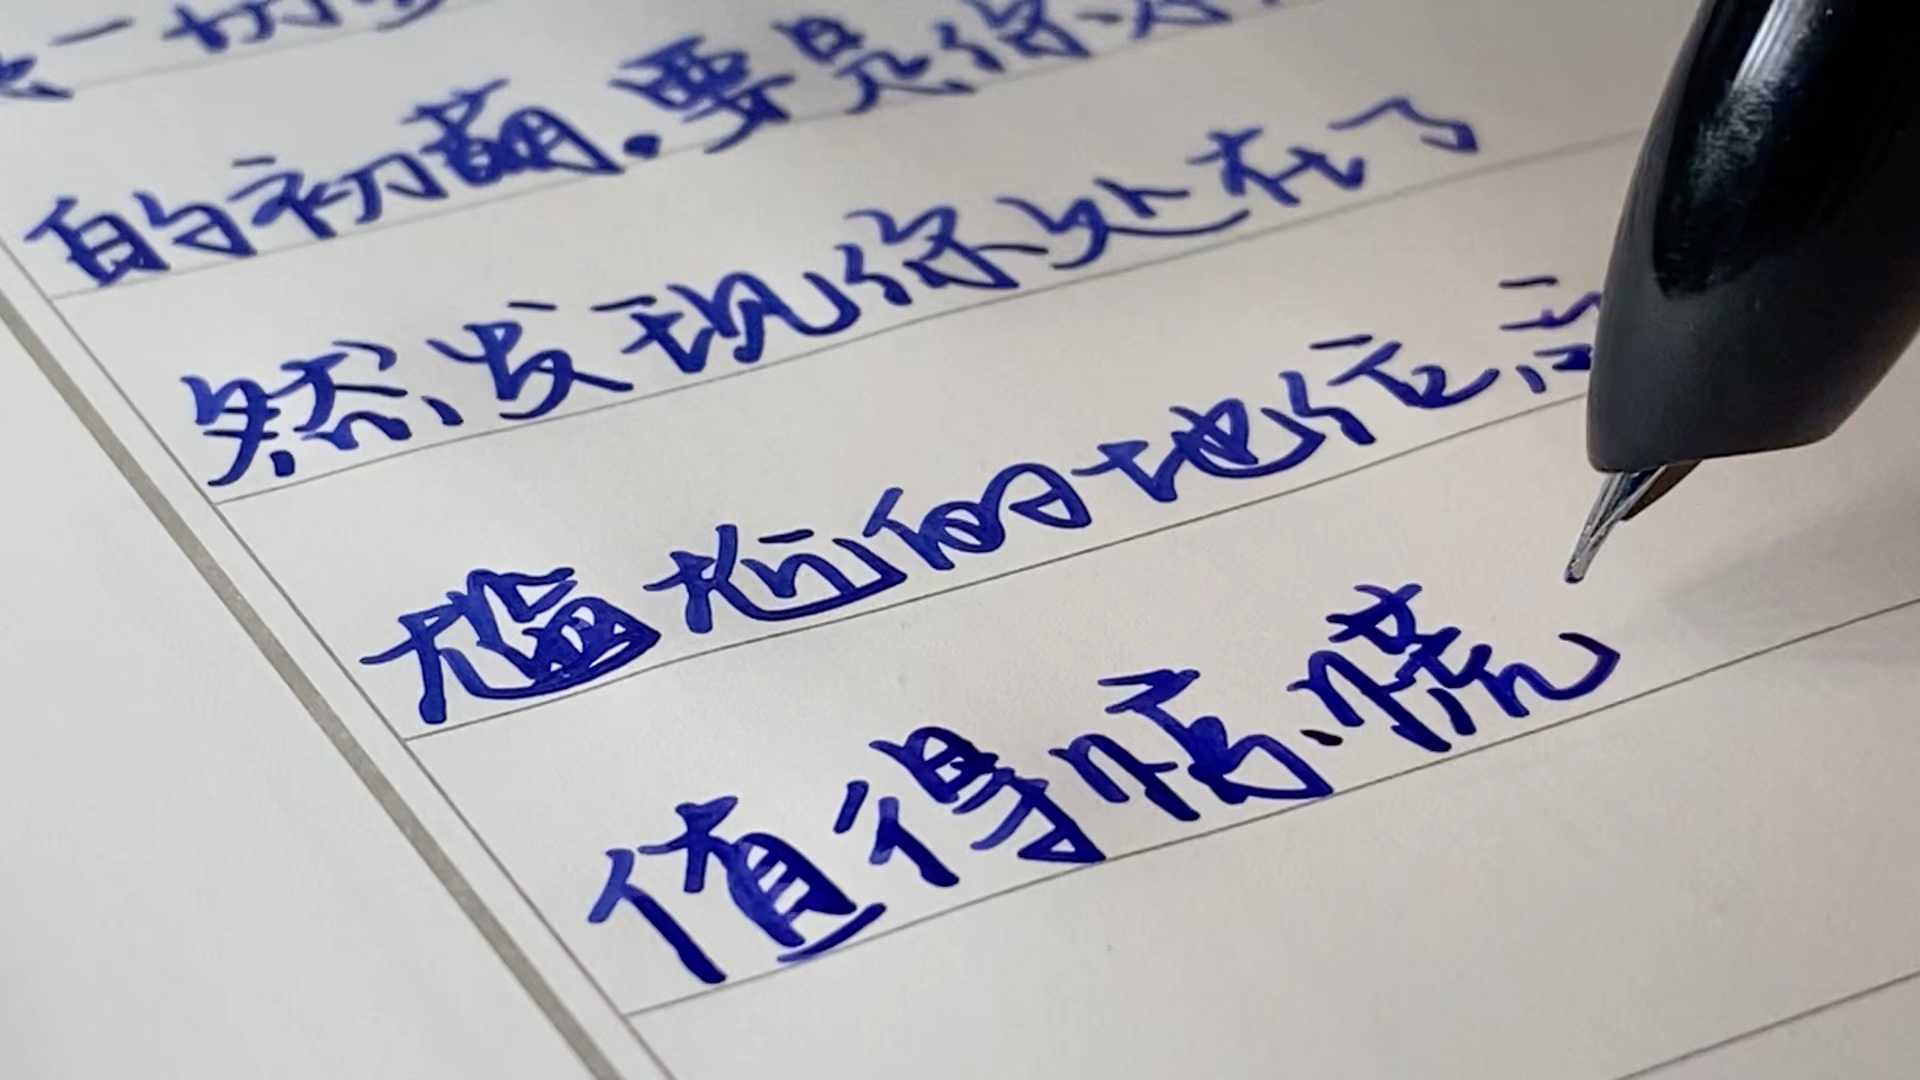 一切
的初萌.要是你
然发现你处在了
尴尬的地位
值得惊慌